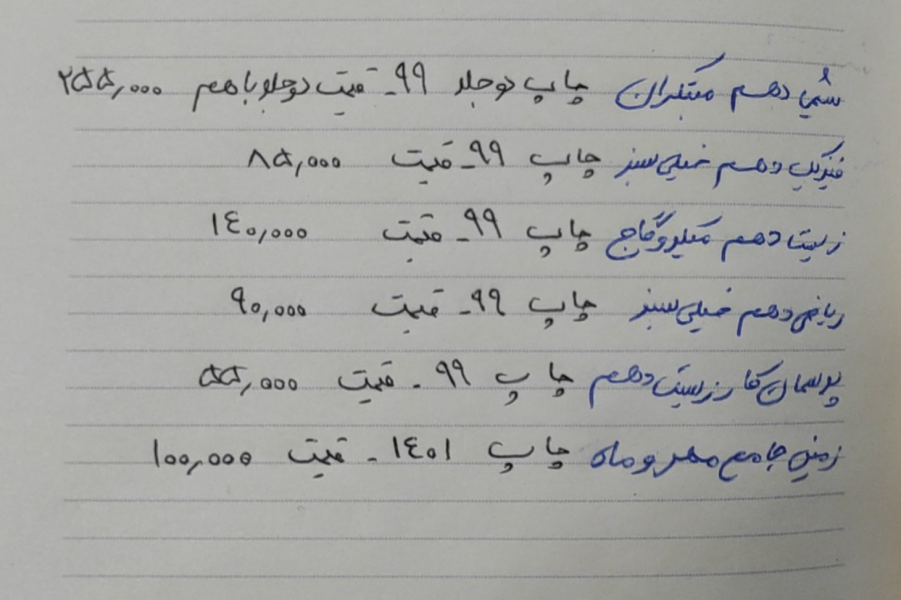 شیمی دهم مبتکران چاپ دو جلد ۹۹ـ قیمت دو جلد باهم ۲۵۵,۰۰۰
فیزیک دهم خیلی سبز چاپ ۹۹ـ قیمت ۸۵,۰۰۰
زیست دهم میکرو گاج چاپ ۹۹ـ قیمت ۱۴۰,۰۰۰
ریاضی دهم خیلی سبز چاپ ۹۹ـ قیمت ۹۰,۰۰۰
پرسمان کار زیست دهم چاپ ۹۹ ـ قیمت ۵۵,۰۰۰
زمین جامع مهر و ماه چاپ ۱۴۰۱ ـ قیمت ۱۰۰,۰۰۰